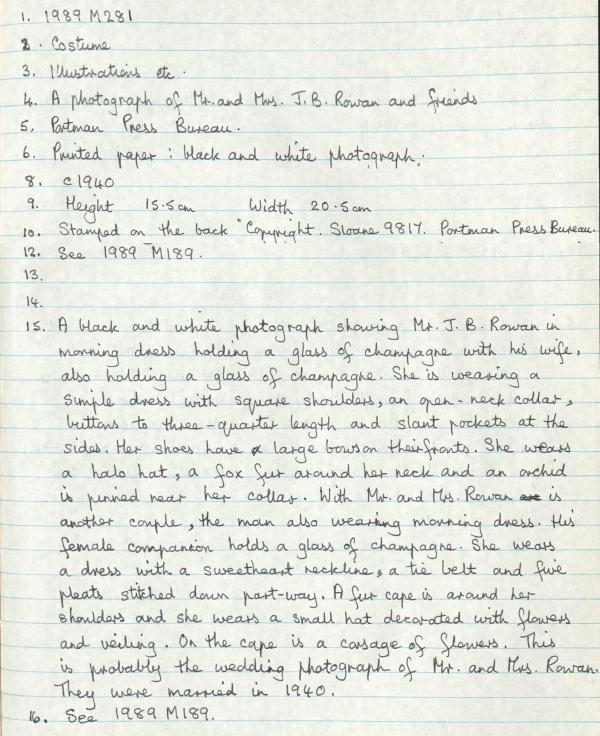 1. 1989 M281
2. Costume
3. Illustrations etc.
4. A photograph of Mr. and Mrs. J.B. Rowan and friends
5. Portman Press Bureau.
6. Printed paper: black and white photograph.
8. c1940
9. Height 15.5cm Width 20.5cm
10. Stamped on the back "Copyright. Sloane 9817. Portman Press Bureau.
12. See 1989 M189.
13.
14.
15. A black and white photograph showing Mr. J.B. Rowan in
morning dress holding a glass of champagne with his wife,
also holding a glass of champagne. She is wearing a
simple dress with square shoulders, an open-neck collar,
buttons to three-quarter length and slant pockets at the
sides. Her shoes have large bows on their fronts. She wears
a halo hat, a fox fur around her neck and an orchid
is pinned near her collar. With Mr. and Mrs. Rowan is
another couple, the man also wearing morning dress. His
female companion holds a glass of champagne. She wears
a dress with a sweetheart neckline, a tie belt and five
pleats stitched down part-way. A fur cape is around her
shoulders and she wears a small hat decorated with flowers
and veiling. On the cape is a corsage of flowers. This
is probably the wedding photograph of Mr. and Mrs. Rowan.
They were married in 1940.
16. See 1989 M189.